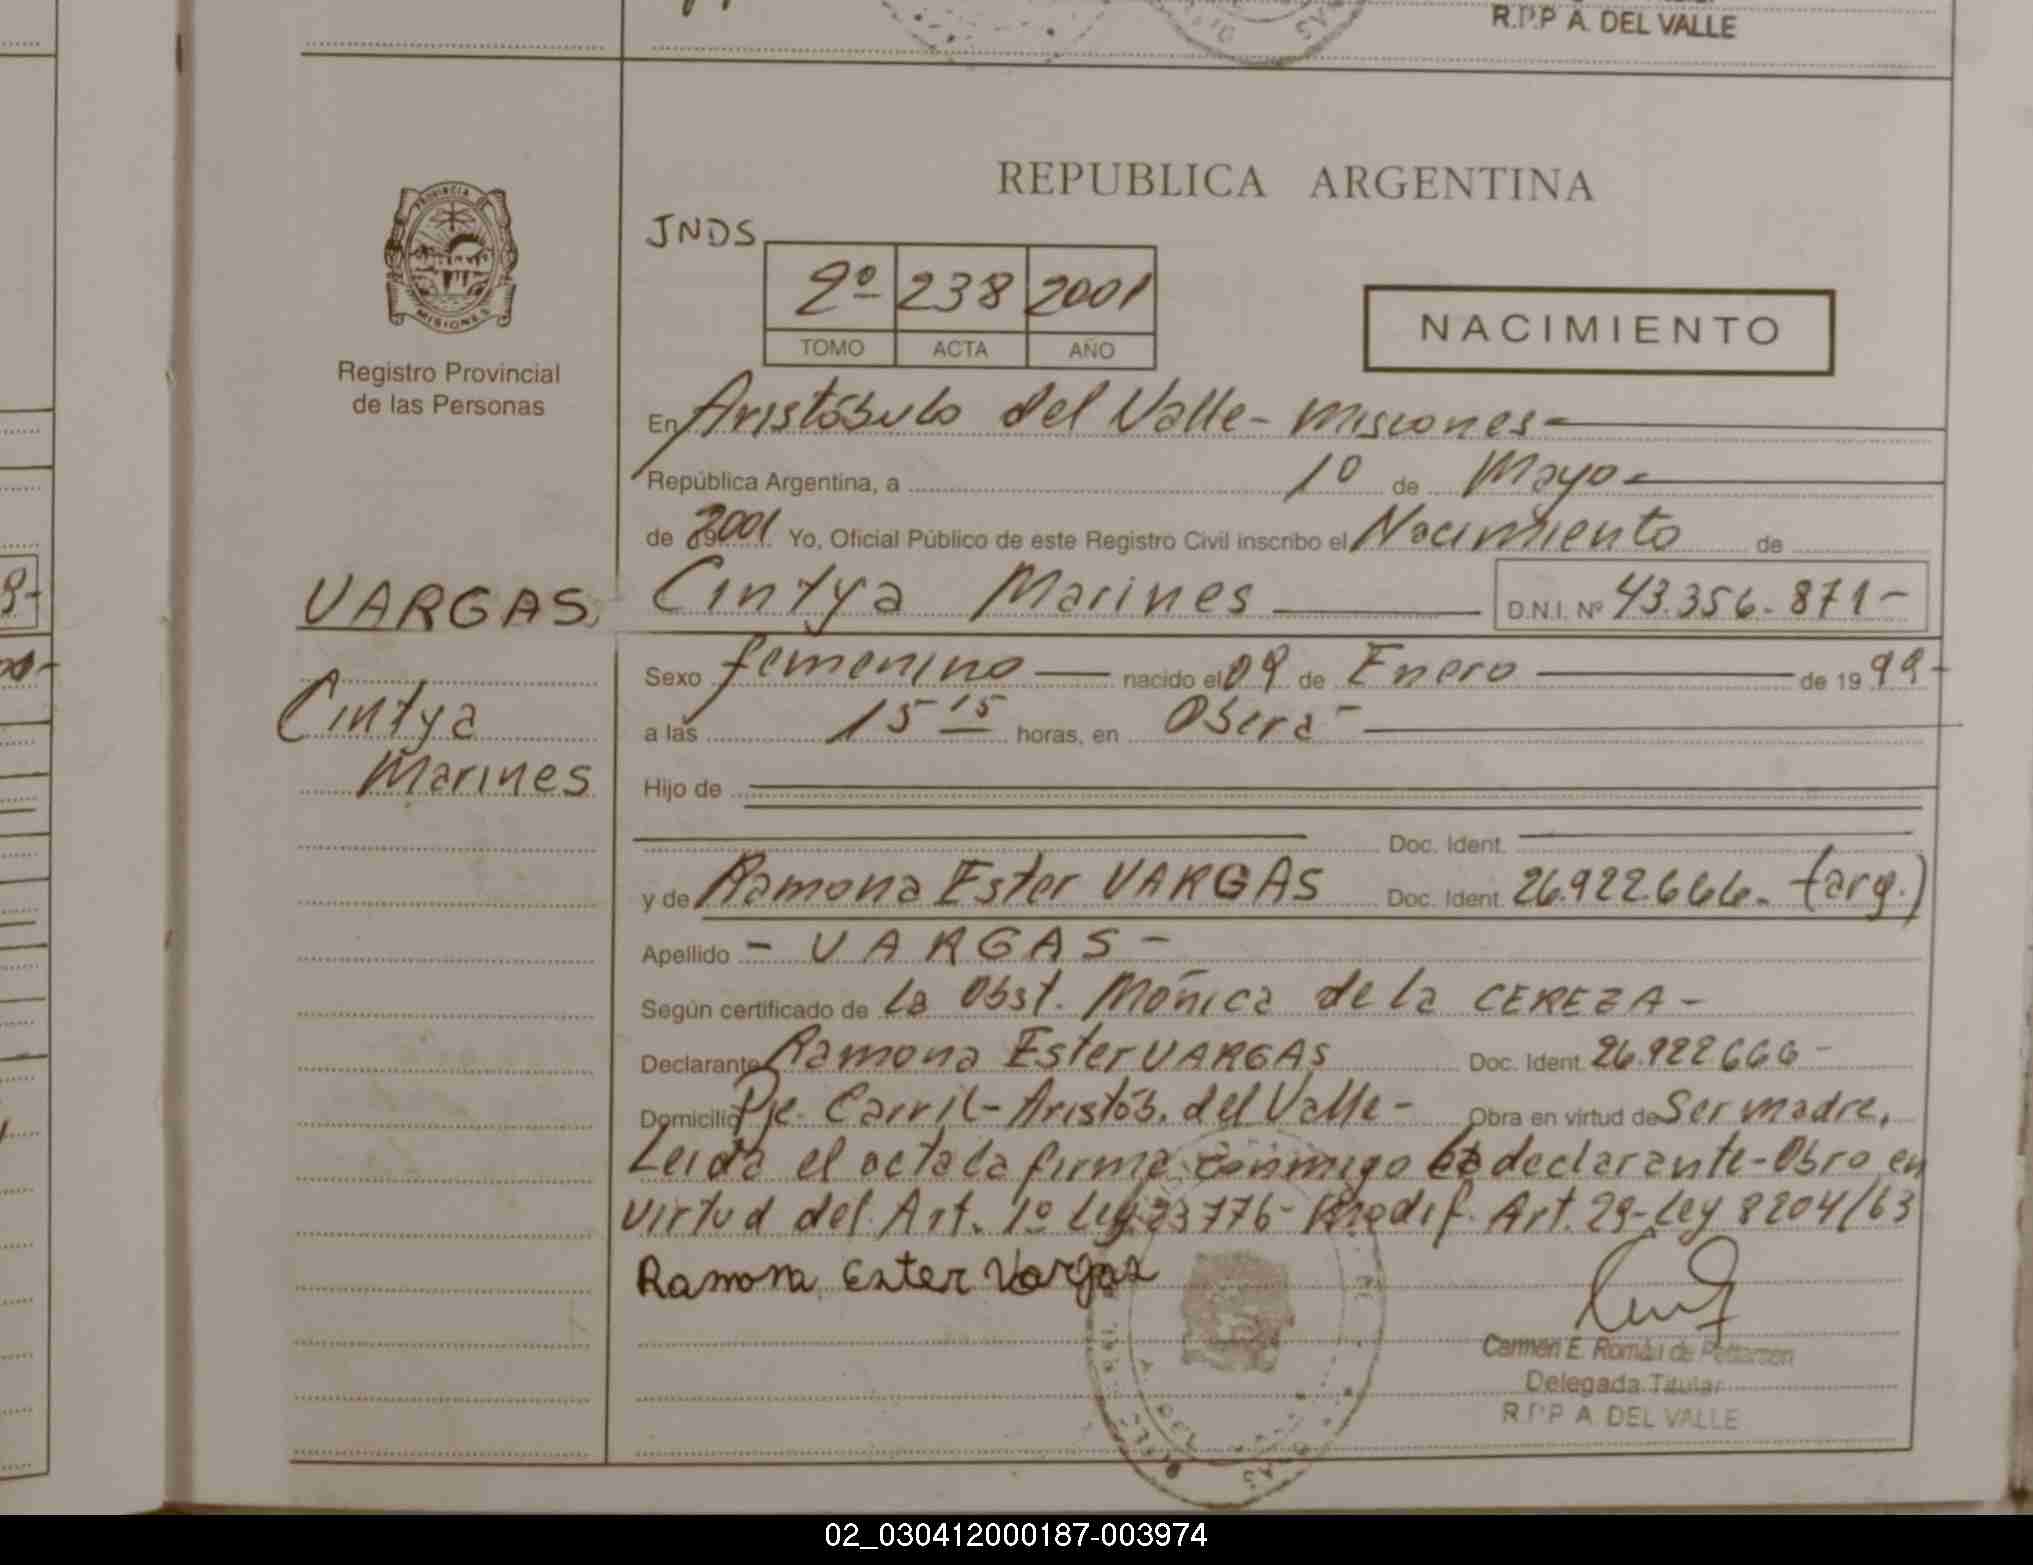 R.P.P A. DEL VALLE
REPUBLICA ARGENTINA
PROVINCIA DE
MISIONES
Registro Provincial
de las Personas
JNDS
2º 238 2001
TOMO ACTA AÑO
NACIMIENTO
En Aristóbulo del Valle - Misiones -
República Argentina, a 1º de Mayo -
de 2001 Yo, Oficial Público de este Registro Civil inscribo el Nacimiento de
VARGAS Cintya Marines D.N.I. Nº 43.356.871 -
Sexo femenino nacido el 09 de Enero de 1999 -
Cintya
a las 15 15 horas, en Oberá -
Marines
Hijo de
Doc. Ident.
y de Ramona Ester VARGAS Doc. Ident. 26.922.666. (arg.)
Apellido - VARGAS -
Según certificado de la Obst. Mónica de la CEREZA -
Declarante Ramona Ester VARGAS Doc. Ident. 26.922.666 -
Domicilio Pje. Carril - Aristób. del Valle - Obra en virtud de Ser madre,
Leida el acta la firma conmigo la declarante - Obro en
virtud del Art. 1º Ley 23776 - Modif. Art. 29 - Ley 8204/63
Ramona Ester Vargas
Carmen E. Román de
Delegada Titular
R.P.P A. DEL VALLE
02_030412000187-003974